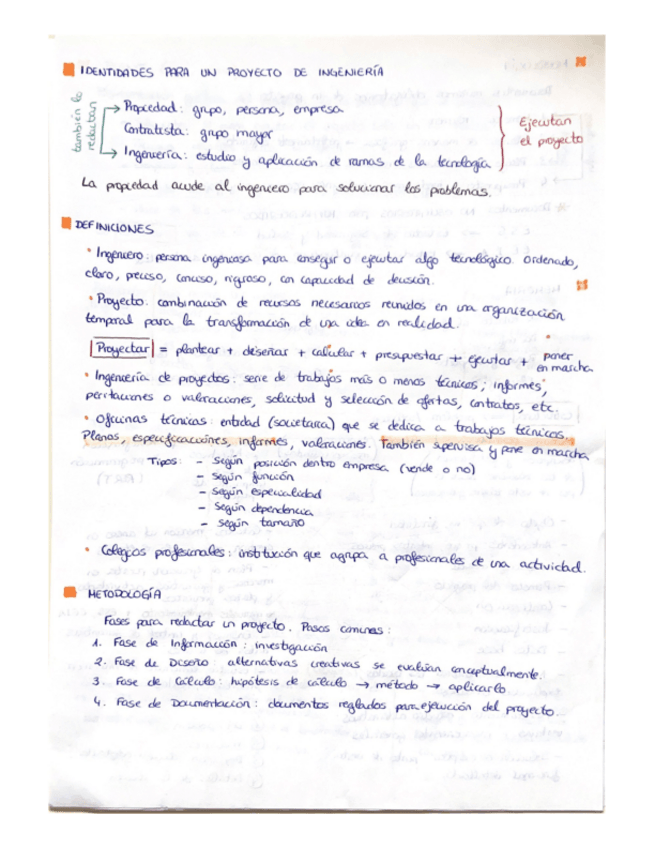 IDENTIDADES PARA UN PROYECTO DE INGENIERÍA
también lo redactan
Propiedad: grupo, persona, empresa
Contratista: grupo mayor
Ingeniería: estudio y aplicación de ramas de la tecnología
Ejecutan
el proyecto
La propiedad acude al ingeniero para solucionar los problemas.
DEFINICIONES
• Ingeniero: persona ingeniosa para conseguir o ejecutar algo tecnológico. Ordenado,
claro, preciso, conciso, riguroso, con capacidad de decisión.
• Proyecto: combinación de recursos necesarios reunidos en una organización
temporal para la transformación de una idea en realidad.
Proyectar = plantear + diseñar + calcular + presupuestar + ejecutar + poner en marcha
• Ingeniería de proyectos: serie de trabajos más o menos técnicos; informes,
peritaciones o valoraciones, solicitud y selección de ofertas, contratos, etc.
• Oficinas técnicas: entidad (societaria) que se dedica a trabajos técnicos.
Planos, especificaciones, informes, valoraciones. También supervisa y pone en marcha
Tipos: - Según posición dentro empresa (vende o no)
- Según función
- Según especialidad
- Según dependencia
- Según tamaño
• Colegios profesionales: institución que agrupa a profesionales de una actividad.
METODOLOGÍA
Fases para redactar un proyecto. Pasos comunes:
1. Fase de Información: investigación
2. Fase de Diseño: alternativas creativas se evalúan conceptualmente.
3. Fase de Cálculo: hipótesis de cálculo → método → aplicarlo
4. Fase de Documentación: documentos reglados para ejecución del proyecto.